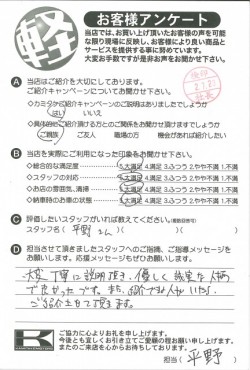 軽
お客様アンケート
当店では、お買い上げ頂いたお客様の声を可能
な限り現場に反映し、お客様により良い商品と
サービスを提供する事に努めています。
大変お手数ですが是非お声をお聞かせ下さい。
A 当店はご紹介を大切にしております。
ご紹介キャンペーンについてお聞かせ下さい。
◇カミタケご紹介キャンペーンのご説明はありましたでしょうか
はい いいえ
◇具体的にご紹介頂ける方とのご関係をお聞かせ頂けますでしょうか
ご親族 ご友人 職場の方 機会があれば紹介したい
B 当店を実際にご利用になった印象をお聞かせ下さい。
◇総合的な満足度 5.大満足 4.満足 3.ふつう 2.やや不満 1.不満
◇スタッフの対応 5.大満足 4.満足 3.ふつう 2.やや不満 1.不満
◇お店の雰囲気、清掃 5.大満足 4.満足 3.ふつう 2.やや不満 1.不満
◇納車時のお車の状態 5.大満足 4.満足 3.ふつう 2.やや不満 1.不満
C 評価したいスタッフがいれば教えてください。(複数回答可)
スタッフ名( 平野さん )
D 担当させて頂きましたスタッフへのご指摘、ご指導メッセージを
お願いします。応援メッセージもぜひお願いします。
大変丁寧に説明頂き、優しく誠実な人柄
で良かったです。また、
ご紹介させて頂きます。
K
ご協力に心よりお礼を申し上げます。
今後とも宜しくお引き立てご愛顧の程お願い申し上げます。
またのご来店を心からお待ちしております。
担当( 平野 )